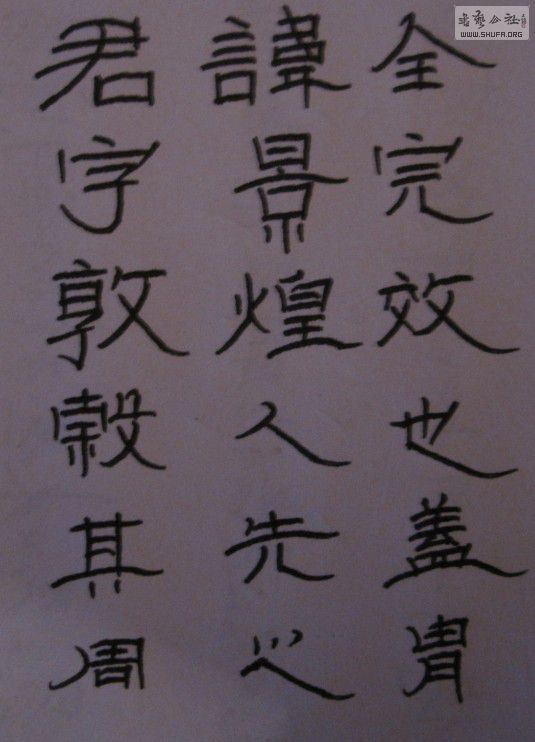 書藝公社
WWW.SHUFA.ORG
君諱全
字景完
敦煌效
穀人也
其先蓋
周之胄